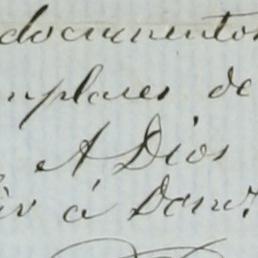 documentos
mplares de
A Dios
á Dom.